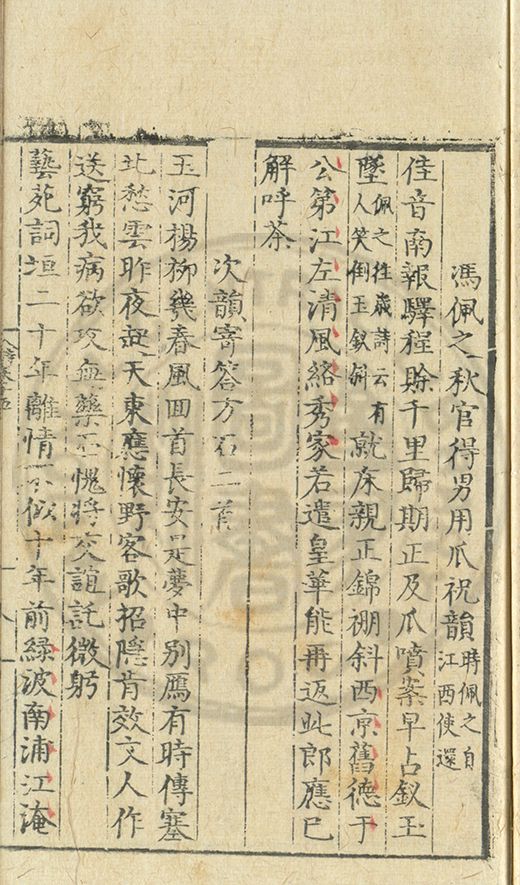 馮佩之秋官得男用爪祝韻時佩之自江西使還
佳音南報驛程賒千里歸期正及爪噴案早占釵玉
墜佩之徃歲詩云有人笑倒玉釵斜就床親正錦棚斜西京舊德于
公第江左清風絡秀家若遣皇華能再返此郎應已
解呼茶
次韻寄答方石二首
玉河楊柳幾春風回首長安是夢中別鴈有時傳塞
北愁雲昨夜起天東應懷野客歌招隱肯效文人作
送窮我病欲攻無藥石愧將交誼託微躬
藝苑詞垣二十年離情不似十年前綠波南浦江淹